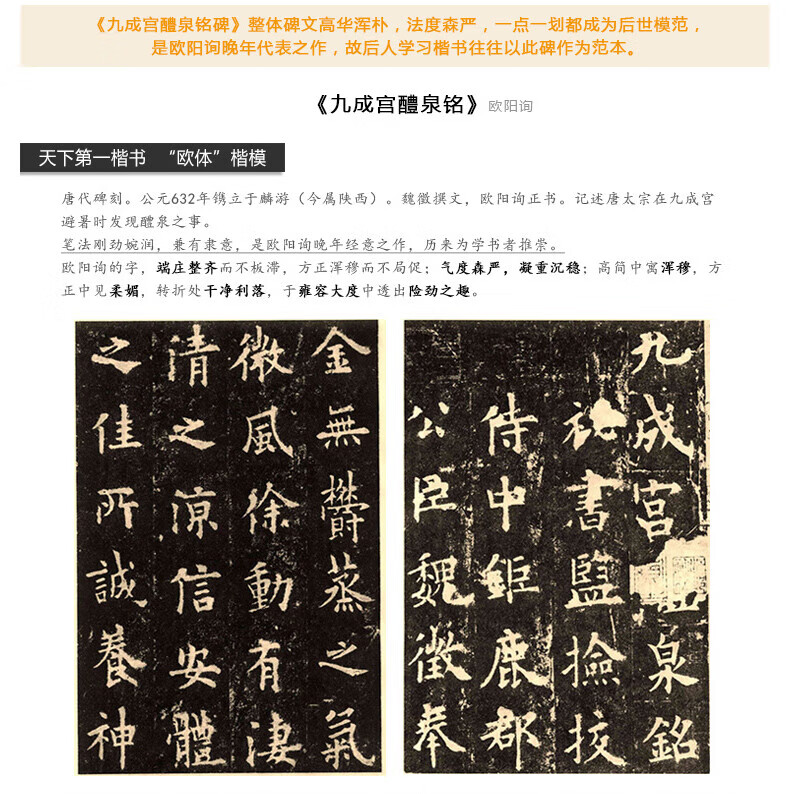 《九成宫醴泉铭碑》整体碑文高华浑朴，法度森严，一点一划都成为后世模范，
是欧阳询晚年代表之作，故后人学习楷书往往以此碑作为范本。
《九成宫醴泉铭》欧阳询
天下第一楷书 “欧体”楷模
唐代碑刻。公元632年镌立于麟游（今属陕西）。魏徵撰文，欧阳询正书。记述唐太宗在九成宫
避暑时发现醴泉之事。
笔法刚劲婉润，兼有隶意，是欧阳询晚年经意之作，历来为学书者推崇。
欧阳询的字，端庄整齐而不板滞，方正浑穆而不局促；气度森严，凝重沉稳；高简中寓浑穆，方
正中见柔媚，转折处干净利落，于雍容大度中透出险劲之趣。
九成宫泉銘
祕書監撿挍
侍中鉅鹿郡
公臣魏徵奉
金無欝蒸之氣
微風徐動有淒
清之涼信安體
之佳所誠養神